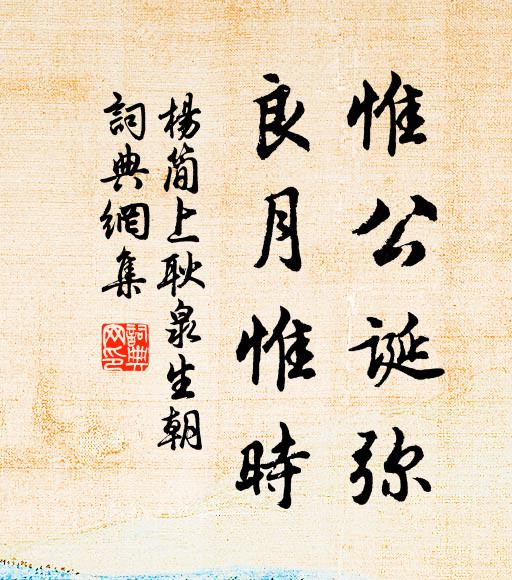 惟公誕弥
良月惟時
楊簡上耿泉生朝
詞典網集
詞典网印